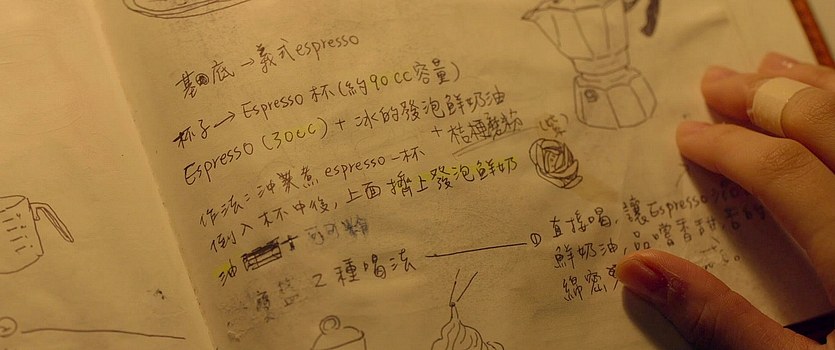 基底→義式espresso
杯子→Espresso 杯(約90cc容量)
Espresso (30cc) + 冰的發泡鮮奶油
+ 桔梗蘑粉
作法:沖煮煮 espresso一杯
倒入杯中後,上面擠上發泡鮮奶
油
可可粉
2種喝法
①
直接喝,讓Espresso
鮮奶油,品嚐香甜
綿密
②